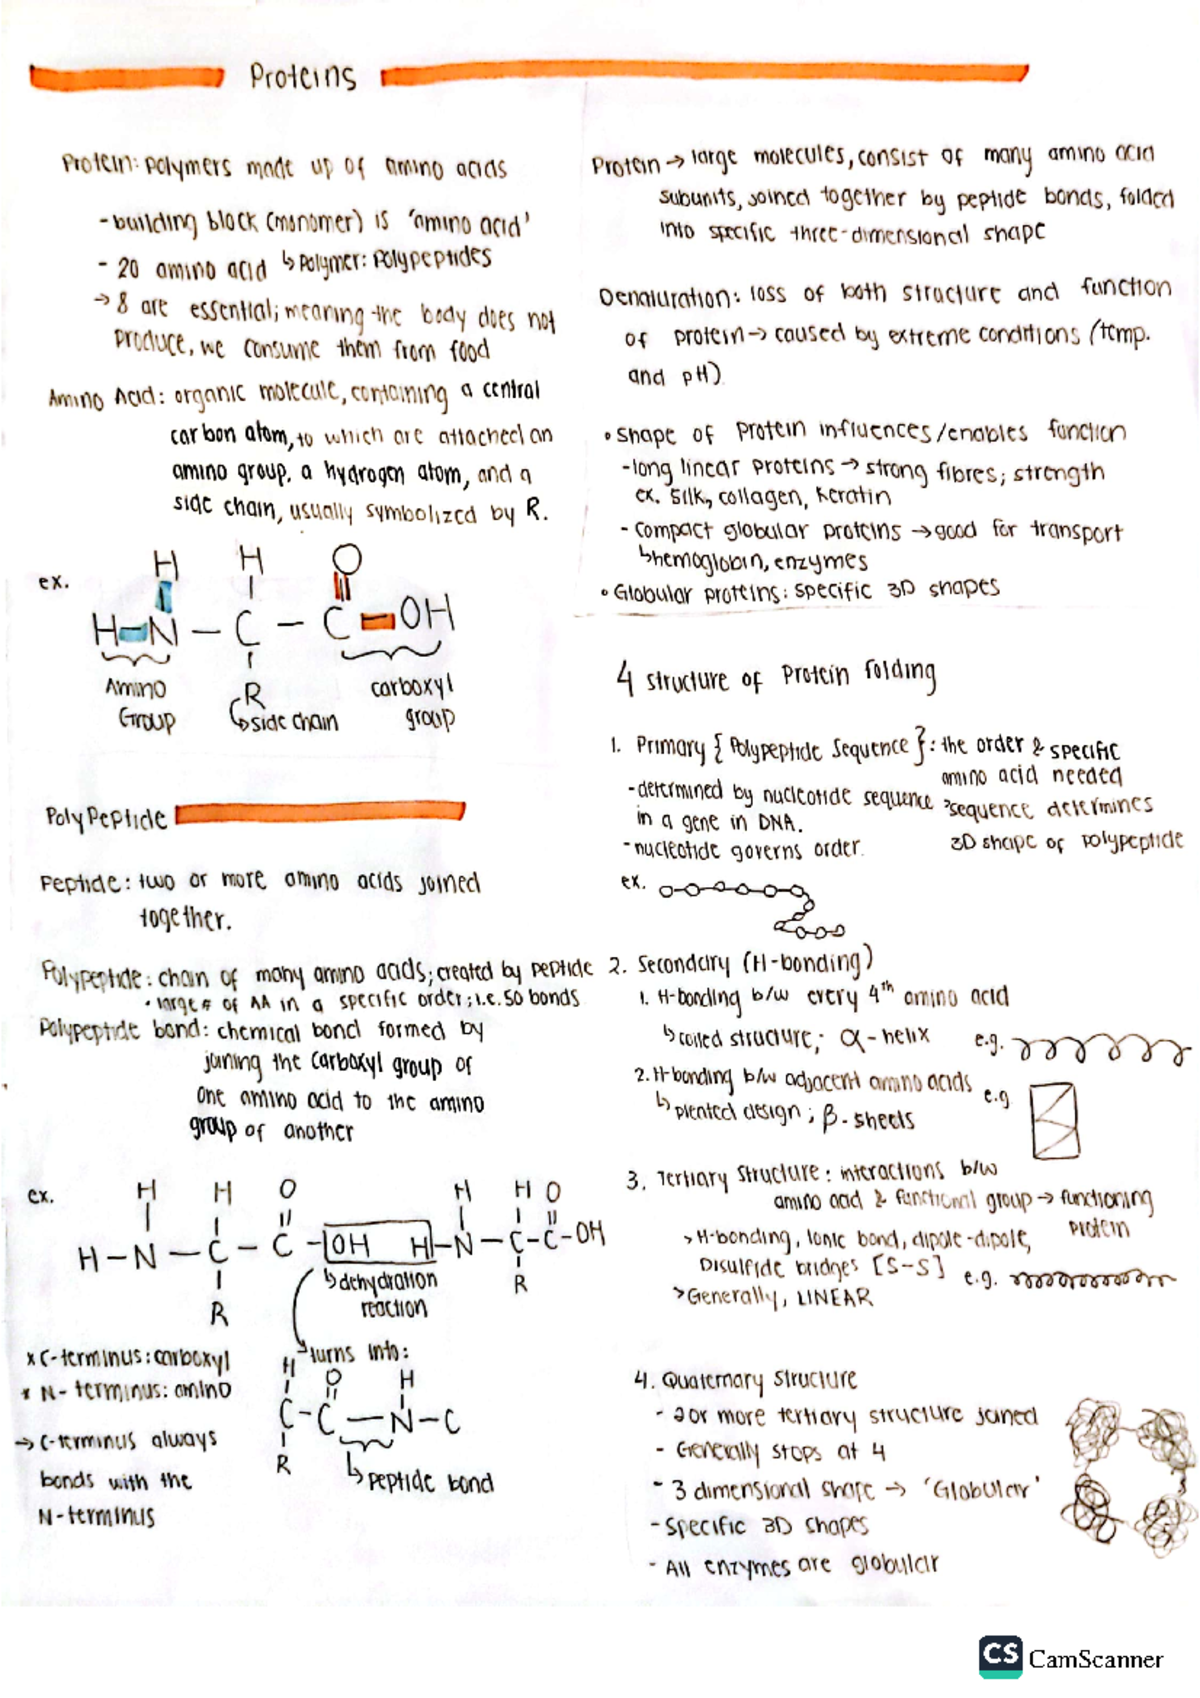 Proteins
Protein: polymers made up of amino acids
- building block (monomer) is 'amino acid'
- 20 amino acid ↳ Polymer: Polypeptides
→ 8 are essential; meaning the body does not
produce, we consume them from food
Amino Acid: organic molecule, containing a central
carbon atom, to which are attached an
amino group, a hydrogen atom, and a
side chain, usually symbolized by R.
ex.
H H O
H-N-C-C-OH
R
Amino
Group
↳ side chain
carboxyl
group
PolyPeptide
Peptide: two or more amino acids joined
together.
Polypeptide: chain of many amino acids; created by peptide
• large # of AA in a specific order; i.e. 50 bonds
Polypeptide bond: chemical bond formed by
joining the carboxyl group of
one amino acid to the amino
group of another
ex.
H H O H H O
H-N-C-C-OH H-N-C-C-OH
R R
↳ dehydration
reaction
turns into:
H O H
C-C-N-C
R
↳ peptide bond
x C-terminus: carboxyl
x N-terminus: amino
→ C-terminus always
bonds with the
N-terminus
Protein → large molecules, consist of many amino acid
subunits, joined together by peptide bonds, folded
into specific three-dimensional shape
Denaturation: loss of both structure and function
of protein → caused by extreme conditions (temp.
and pH)
• Shape of protein influences/enables function
- long linear proteins → strong fibres; strength
ex. silk, collagen, keratin
- compact globular proteins → good for transport
↳ hemoglobin, enzymes
• Globular proteins: specific 3D shapes
4 structure of Protein folding
1. Primary {Polypeptide Sequence}: the order & specific
amino acid needed
- determined by nucleotide sequence
in a gene in DNA.
- nucleotide governs order.
> sequence determines
3D shape of polypeptide
ex.
2. Secondary (H-bonding)
1. H-bonding b/w every 4th amino acid
↳ coiled structure; α-helix e.g.
2. H-bonding b/w adjacent amino acids
↳ pleated design; β-sheets e.g
3. Tertiary Structure: interactions b/w
amino acid & functional group → functioning
protein
> H-bonding, Ionic bond, dipole-dipole,
Disulfide bridges [S-S] e.g.
> Generally, LINEAR
4. Quaternary Structure
- 2 or more tertiary structure joined
- Generally stops at 4
- 3 dimensional shape → 'Globular'
- Specific 3D shapes
- All enzymes are globular
CS CamScanner